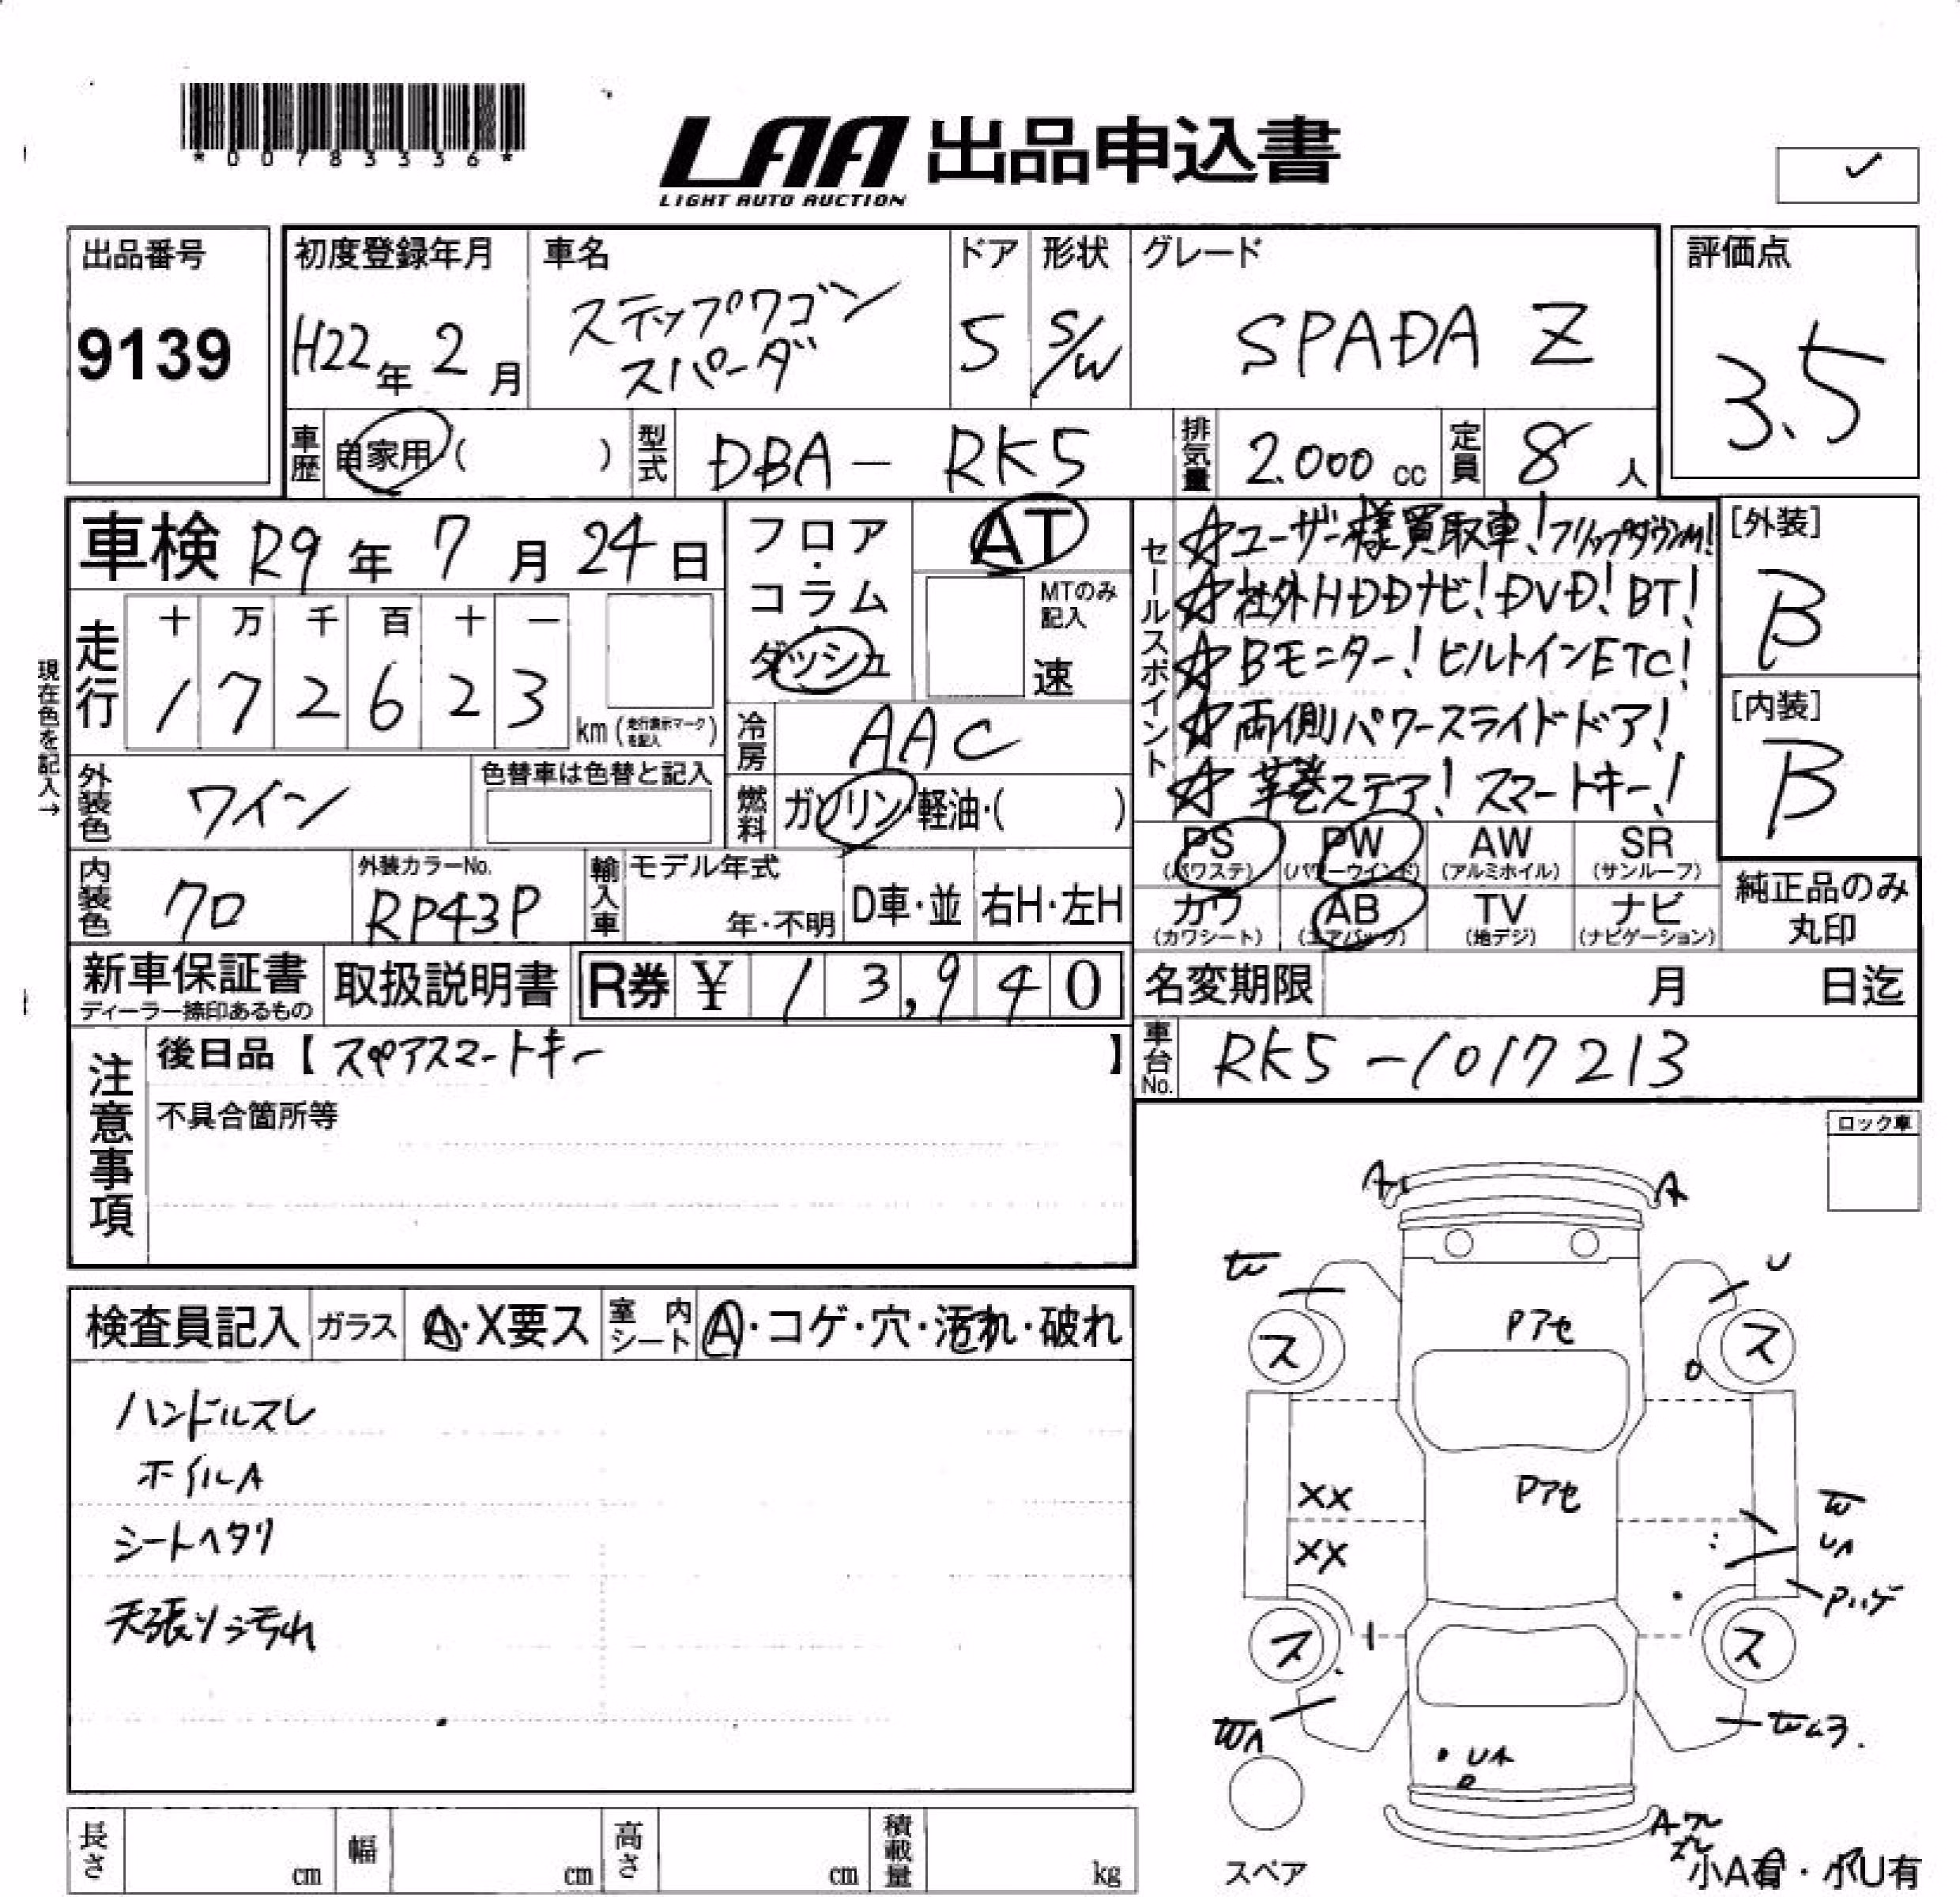 *00783336*
LAA 出品申込書
LIGHT AUTO AUCTION
出品番号
9139
初度登録年月
H22年 2月
車名
ステップワゴン
スパーダ
ドア
5
形状
S/W
グレード
SPADA Z
評価点
3.5
車歴 自家用 ( )
型式 DBA- RK5
排気量 2.000 cc
定員 8人
車検 R9年 7月 24日
走行
十 万 千 百 十 一
1 7 2 6 2 3
km (走行表示マークを記入)
現在色を記入→
フロア・コラム・ダッシュ
AT
MTのみ記入
速
冷房 AAC
燃料 ガソリン・軽油・( )
外装色 ワイン
色替車は色替と記入
内装色 クロ
外装カラーNo.
RP43P
輸入車
モデル年式
年・不明
D車・並
右H・左H
セールスポイント
☆ユーザー様買取車!フリップダウンM!
☆社外HDDナビ!DVD!BT!
☆Bモニター!ビルトインETC!
☆両側パワースライドドア!
☆革巻ステア!スマートキー!
[外装]
B
[内装]
B
PS (パワステ)
PW (パワーウインド)
AW (アルミホイル)
SR (サンルーフ)
カワ (カワシート)
AB (エアバック)
TV (地デジ)
ナビ (ナビゲーション)
純正品のみ
丸印
新車保証書
ディーラー捺印あるもの
取扱説明書
R券 ¥ 13,940
名変期限 月 日迄
車台No. RK5-1017213
注意事項
後日品【スペアスマートキー】
不具合箇所等
ロック車
検査員記入
ガラス A・X要ス
室内シート A・コゲ・穴・汚れ・破れ
ハンドルスレ
ホイルA
シートヘタリ
天張り汚れ
A A
W U
ス Pアセ ス
XX Pアセ W
XX UA
Pハゲ
ス ス
WA
UA
スペア
小A有・小U有
長さ cm
幅 cm
高さ cm
積載量 kg